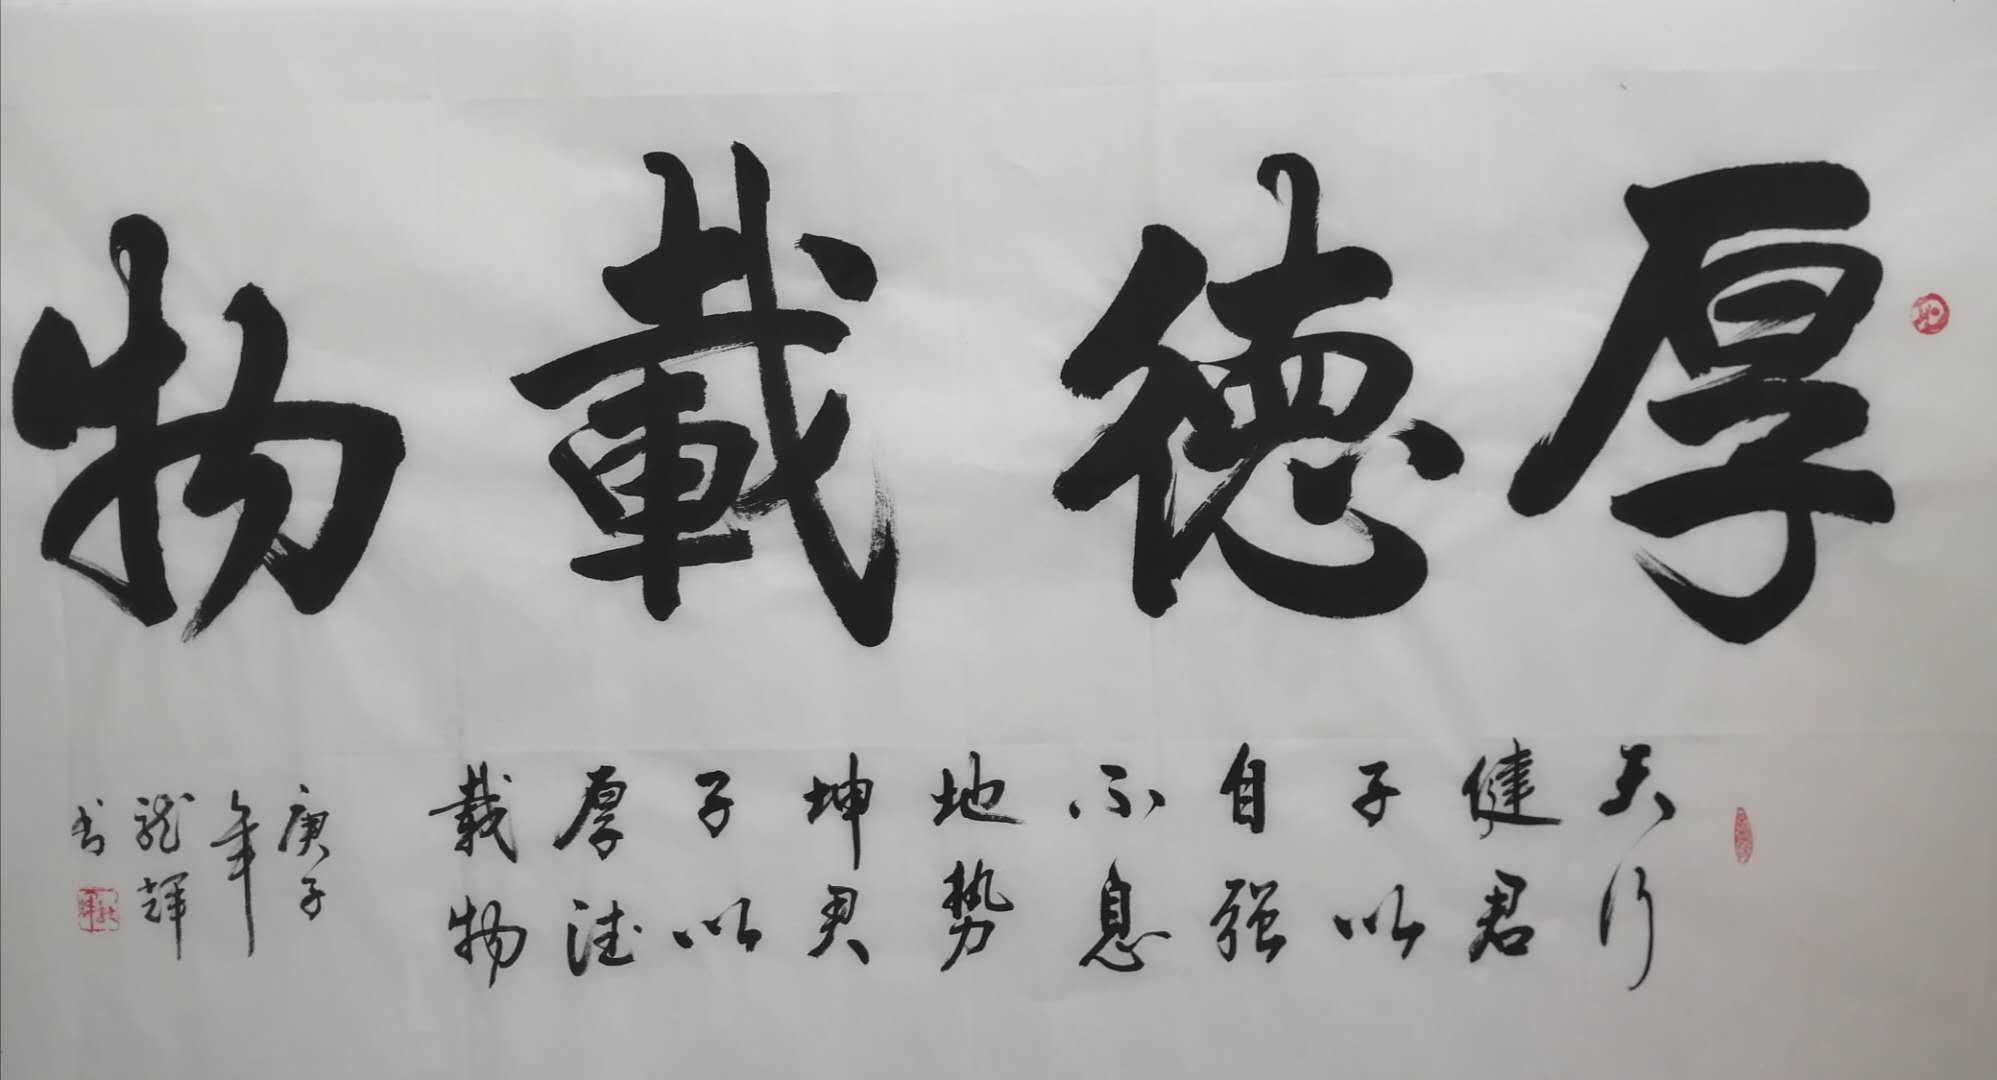 厚德載物
天行
健君
子以
自强
不息
地势
坤君
子以
厚德
载物
庚子
年
龙辉
书